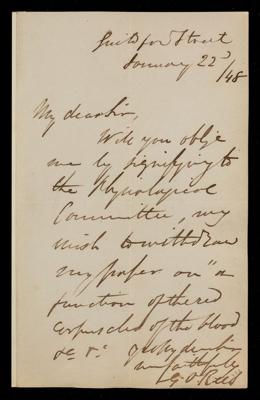 Guildford Street
January 22d
/48
My dear Sir,
Will you oblige
me by signifying to
the Physiological
Committee, my
wish to withdraw
my paper on "a
function of the red
corpuscles of the blood
&c &c yours very truly
faithfully
G O Rees